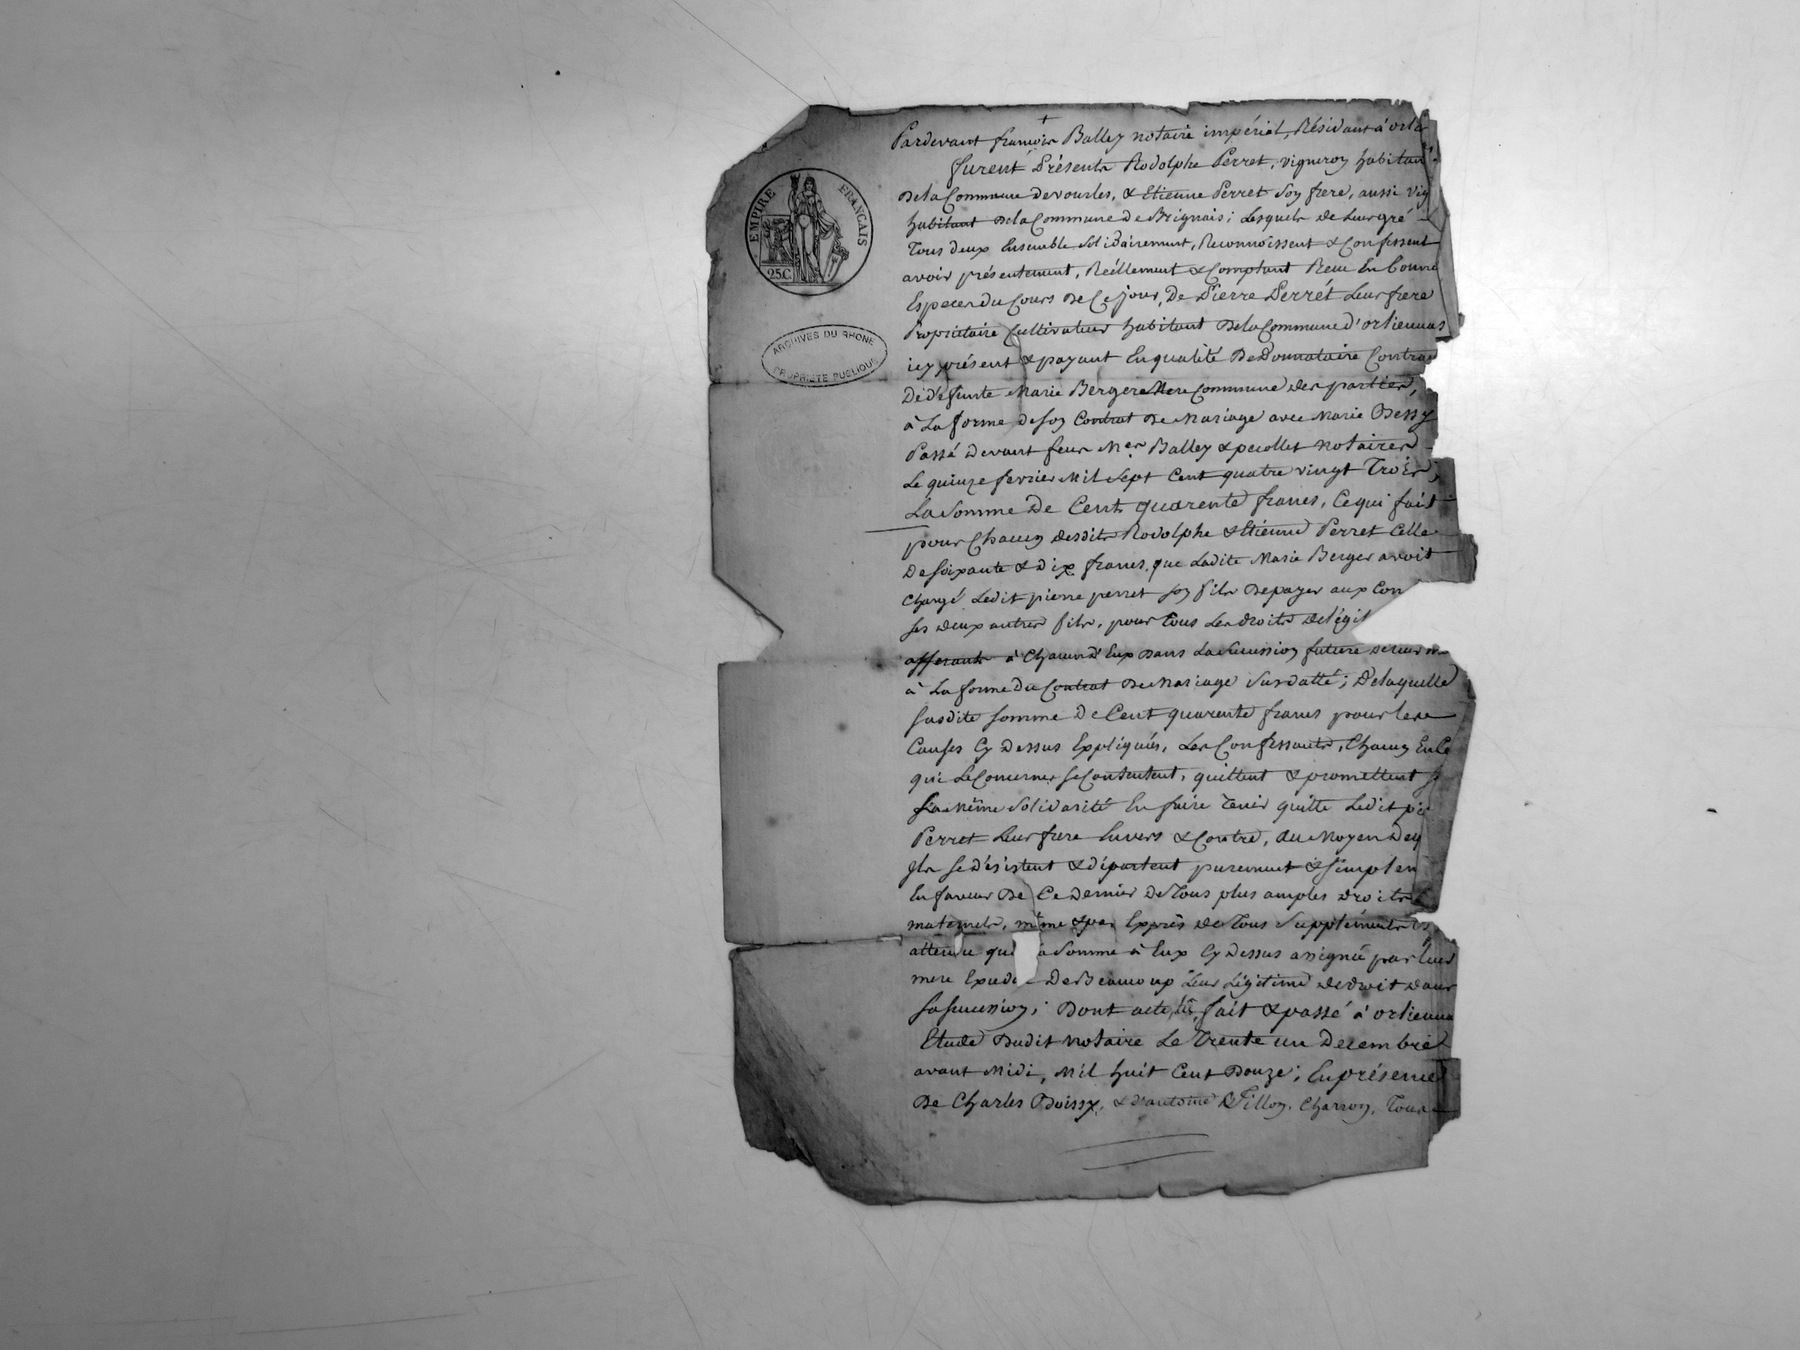 EMPIRE FRANÇAIS
25C
ARCHIVES DU RHONE
PROPRIÉTÉ PUBLIQUE
Pardevant françois Balley notaire impérial, Résidant à orli
furent Présents Rodolphe Perret, vigneron habitant
de la Commune de vourles, & Etienne Perret son frere, aussi vig
habitant de la Commune de Brignais; Lesquels de Leur gré
Tous deux Ensemble Solidairement, Reconnoissent & Confessent
avoir présentement, Réellement & Comptant Recu En bonne
Especes du Cours de Ce jour, De Pierre Perrét Leur frere
Propriétaire Cultivateur habitant De la Commune d'orliennas
icy présent & payant En qualité De Donnataire Contrac
De défunte Marie Bergere Mere Commune des parties,
à La forme de son Contrat De Mariage avec Marie Dessy
Passé devant feus Mes Balley & peollet notaires
Le quinze fevrier Mil Sept Cent quatre vingt Trois,
La Somme De Cent quarente francs, Ce qui fait
pour Chacun desdits Rodolphe & Etienne Perret Celle
De soixante & dix francs, que Ladite Marie Berger avoit
Chargé Ledit pierre perret son fils De payer aux Con
ses deux autres fils, pour Tous Les droits De légit
afferants à Chacun d'Eux Dans La Succession future de leur m
à La forme du Contrat De Mariage Susdatté; De laquelle
susdite somme De Cent quarente francs pour les
Causes Cy dessus Expliqués, Les Confessants, Chacun En Ce
qui Le Concerne, se Contentent, quittent & promettent s
La Même Solidarité En faire Tenir quitte Ledit pie
Perret Leur frere Envers & Contre, Au Moyen De q
Ils se désistent & départent purement & simplem
En faveur De Ce Dernier De Tous plus amples droits
maternels, même & par Exprès de Tous Suppléments
attendu que a Somme à Eux Cy Dessus assignée par leur
mere Exede De Beaucoup Leur Légitime de droit dans
sa succession; Dont acte, fait & passé à orlienna
Etude Dudit notaire Le Trente un Decembre
avant Midi, Mil huit Cent Douze; En présence
De Charles Boissy, & d'antoine Pillon, Charron, Tous